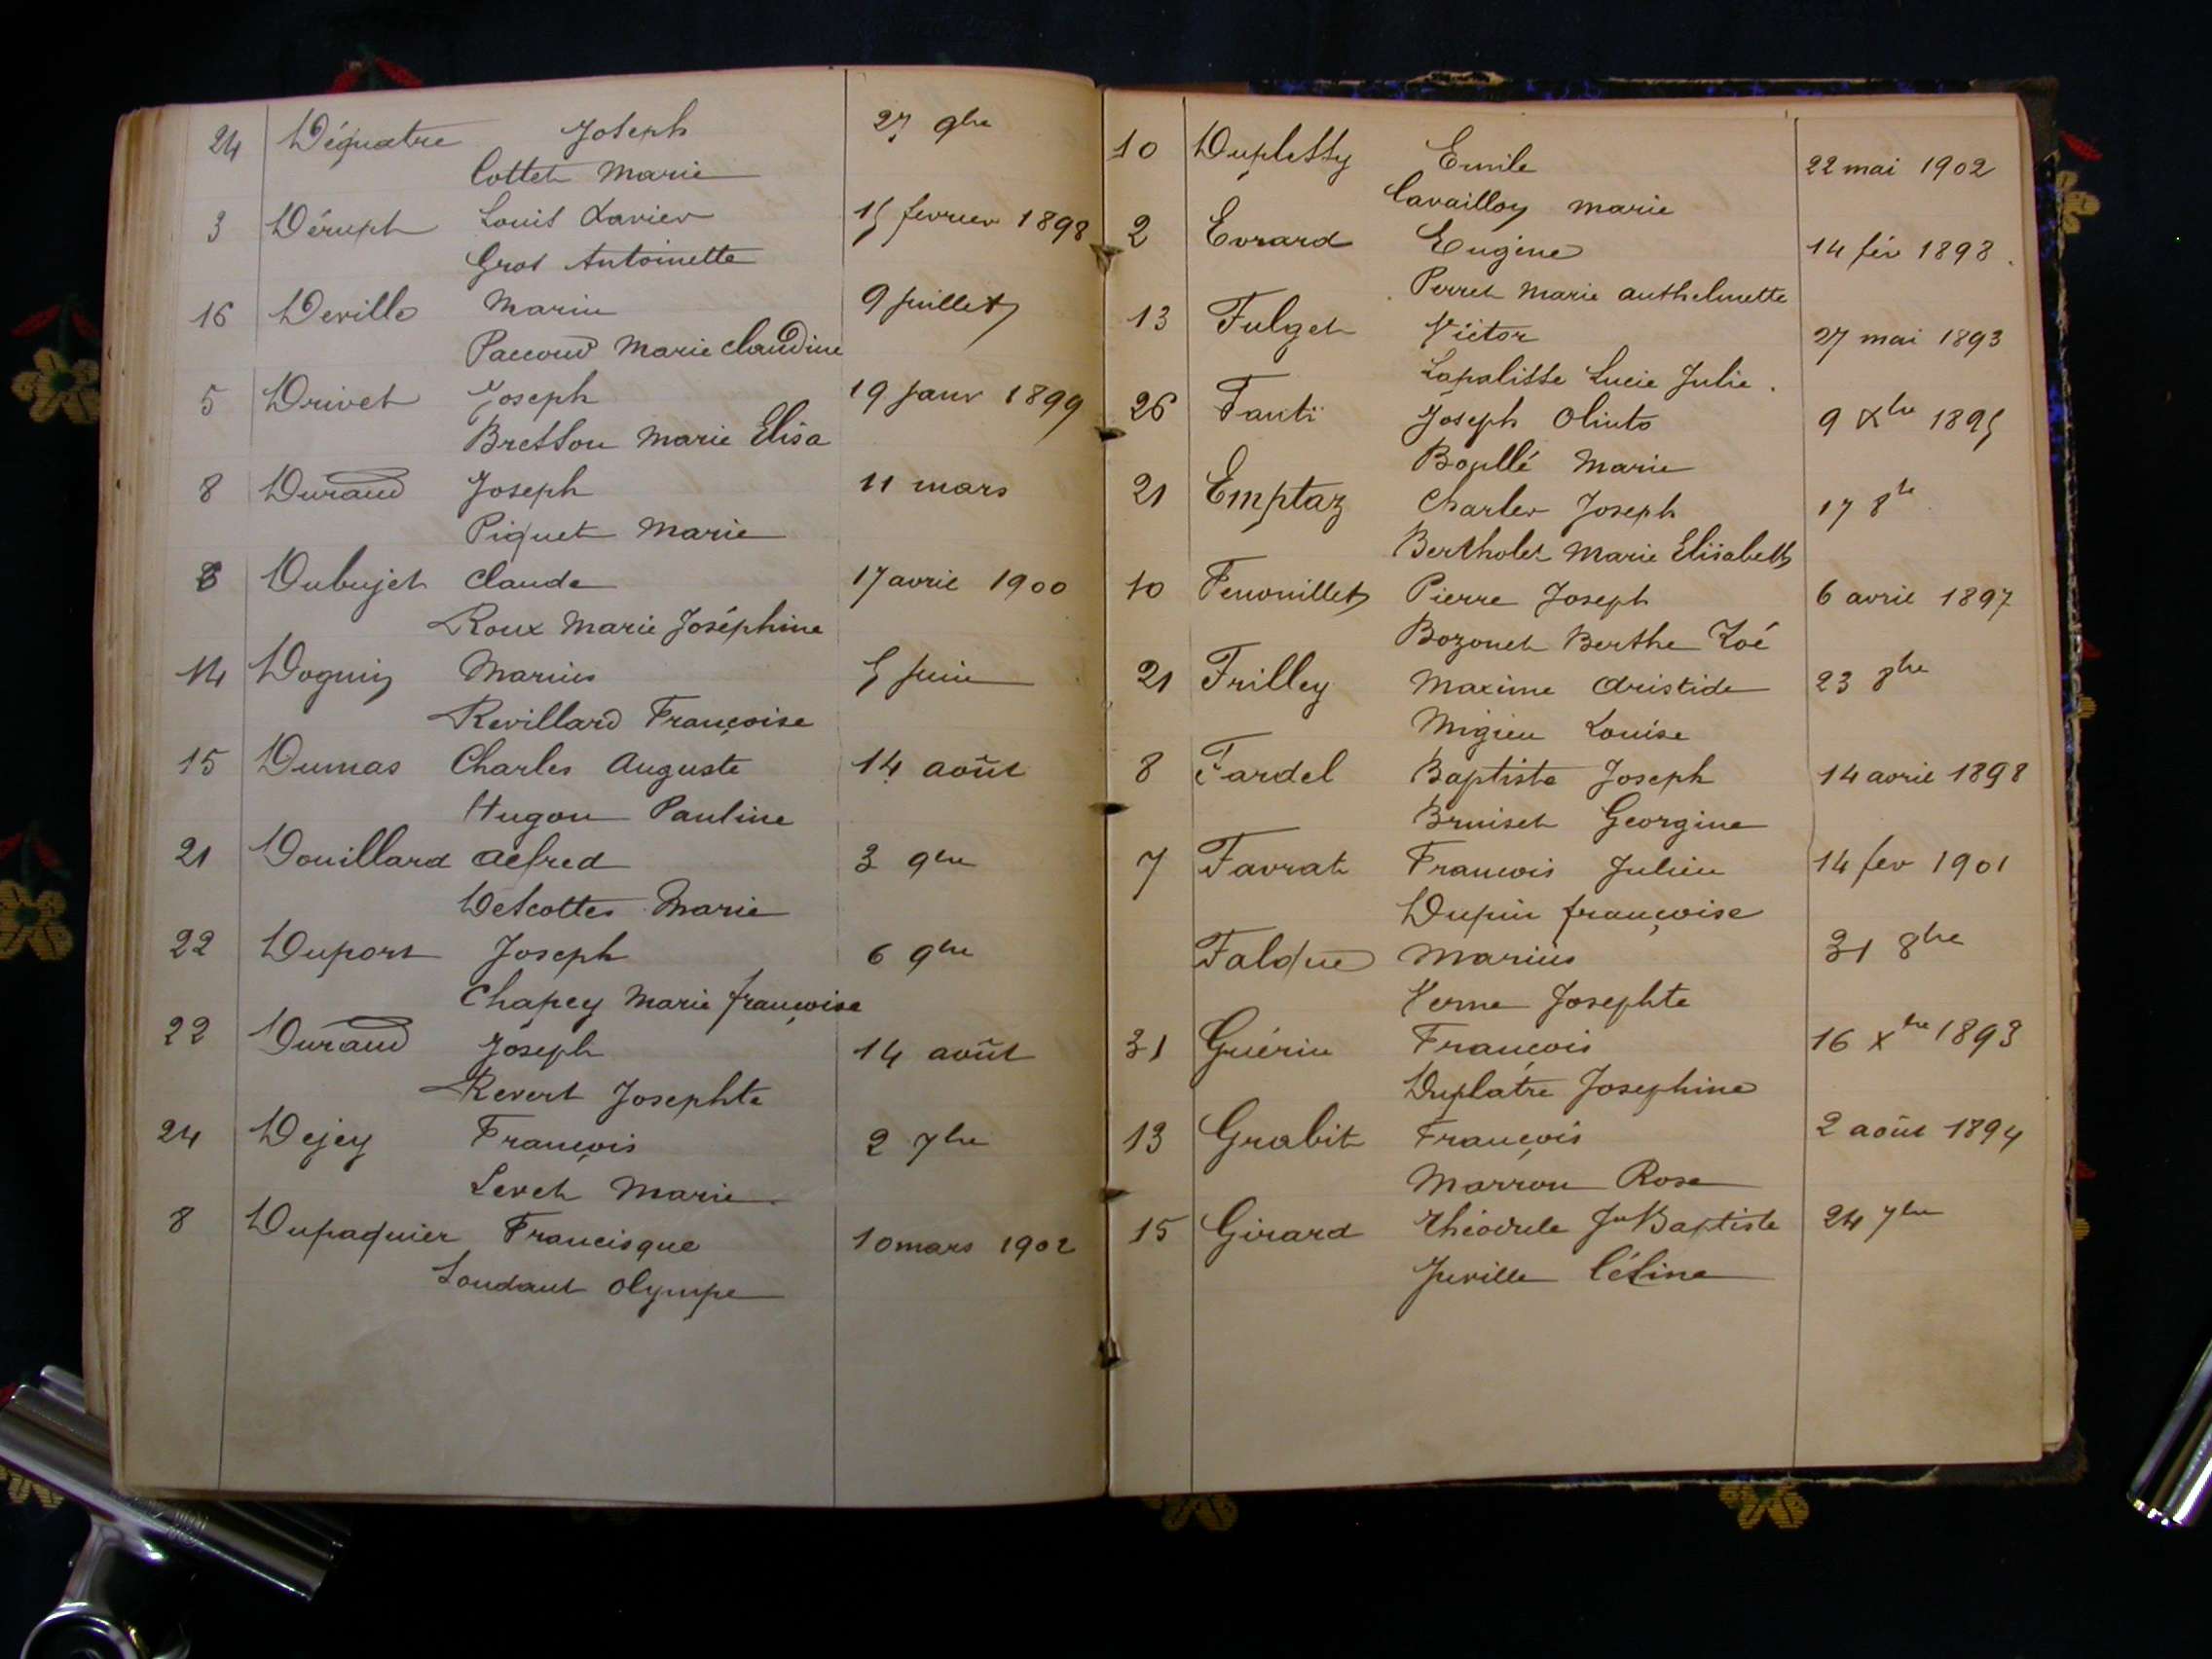 24 Déquatre Joseph 27 9bre
Cottet Marie
3 Déruph Louis Xavier 15 fevrier 1898
Gros Antoinette
16 Deville Marin 9 Juillet
Paccoud Marie Claudine
5 Drivet Joseph 19 Janv 1899
Bresson Marie Elisa
8 Durand Joseph 11 mars
Piquet Marie
8 Dubujet Claude 17 avril 1900
Roux Marie Joséphine
14 Doguin Marius 5 Juin
Revillard Françoise
15 Dumas Charles Auguste 14 août
Hugon Pauline
21 Douillard Alfred 3 9bre
Descottes Marie
22 Duport Joseph 6 9bre
Chapey Marie françoise
22 Durand Joseph 14 août
Revert Josephte
24 Dejey François 2 7bre
Levet Marie
8 Dupaquier Francisque 10 mars 1902
Loudant Olympe
10 Duplessy Emile 22 mai 1902
Cavailloy Marie
2 Evrard Eugène 14 fév 1893
Perret Marie Anthelmette
13 Fulget Victor 27 mai 1893
Lapalisse Lucie Julie
26 Fanti Joseph Olinto 9 Xbre 1895
Boullé Marie
21 Emptaz Charles Joseph 17 8bre
Bertholet Marie Elisabeth
10 Fenouillet Pierre Joseph 6 avril 1897
Bozonet Berthe Zoé
21 Frilley Maxime Aristide 23 8bre
Migieu Louise
8 Fardel Baptiste Joseph 14 avril 1898
Bruiset Georgine
7 Favrat Francois Julien 14 fev 1901
Dupin françoise
Falque Marius 31 8bre
Verne Josephte
31 Guérin François 16 Xbre 1893
Duplatre Josephine
13 Grabit François 2 août 1894
Marron Rose
15 Girard Théodule Jn Baptiste 24 7bre
Juville Céline